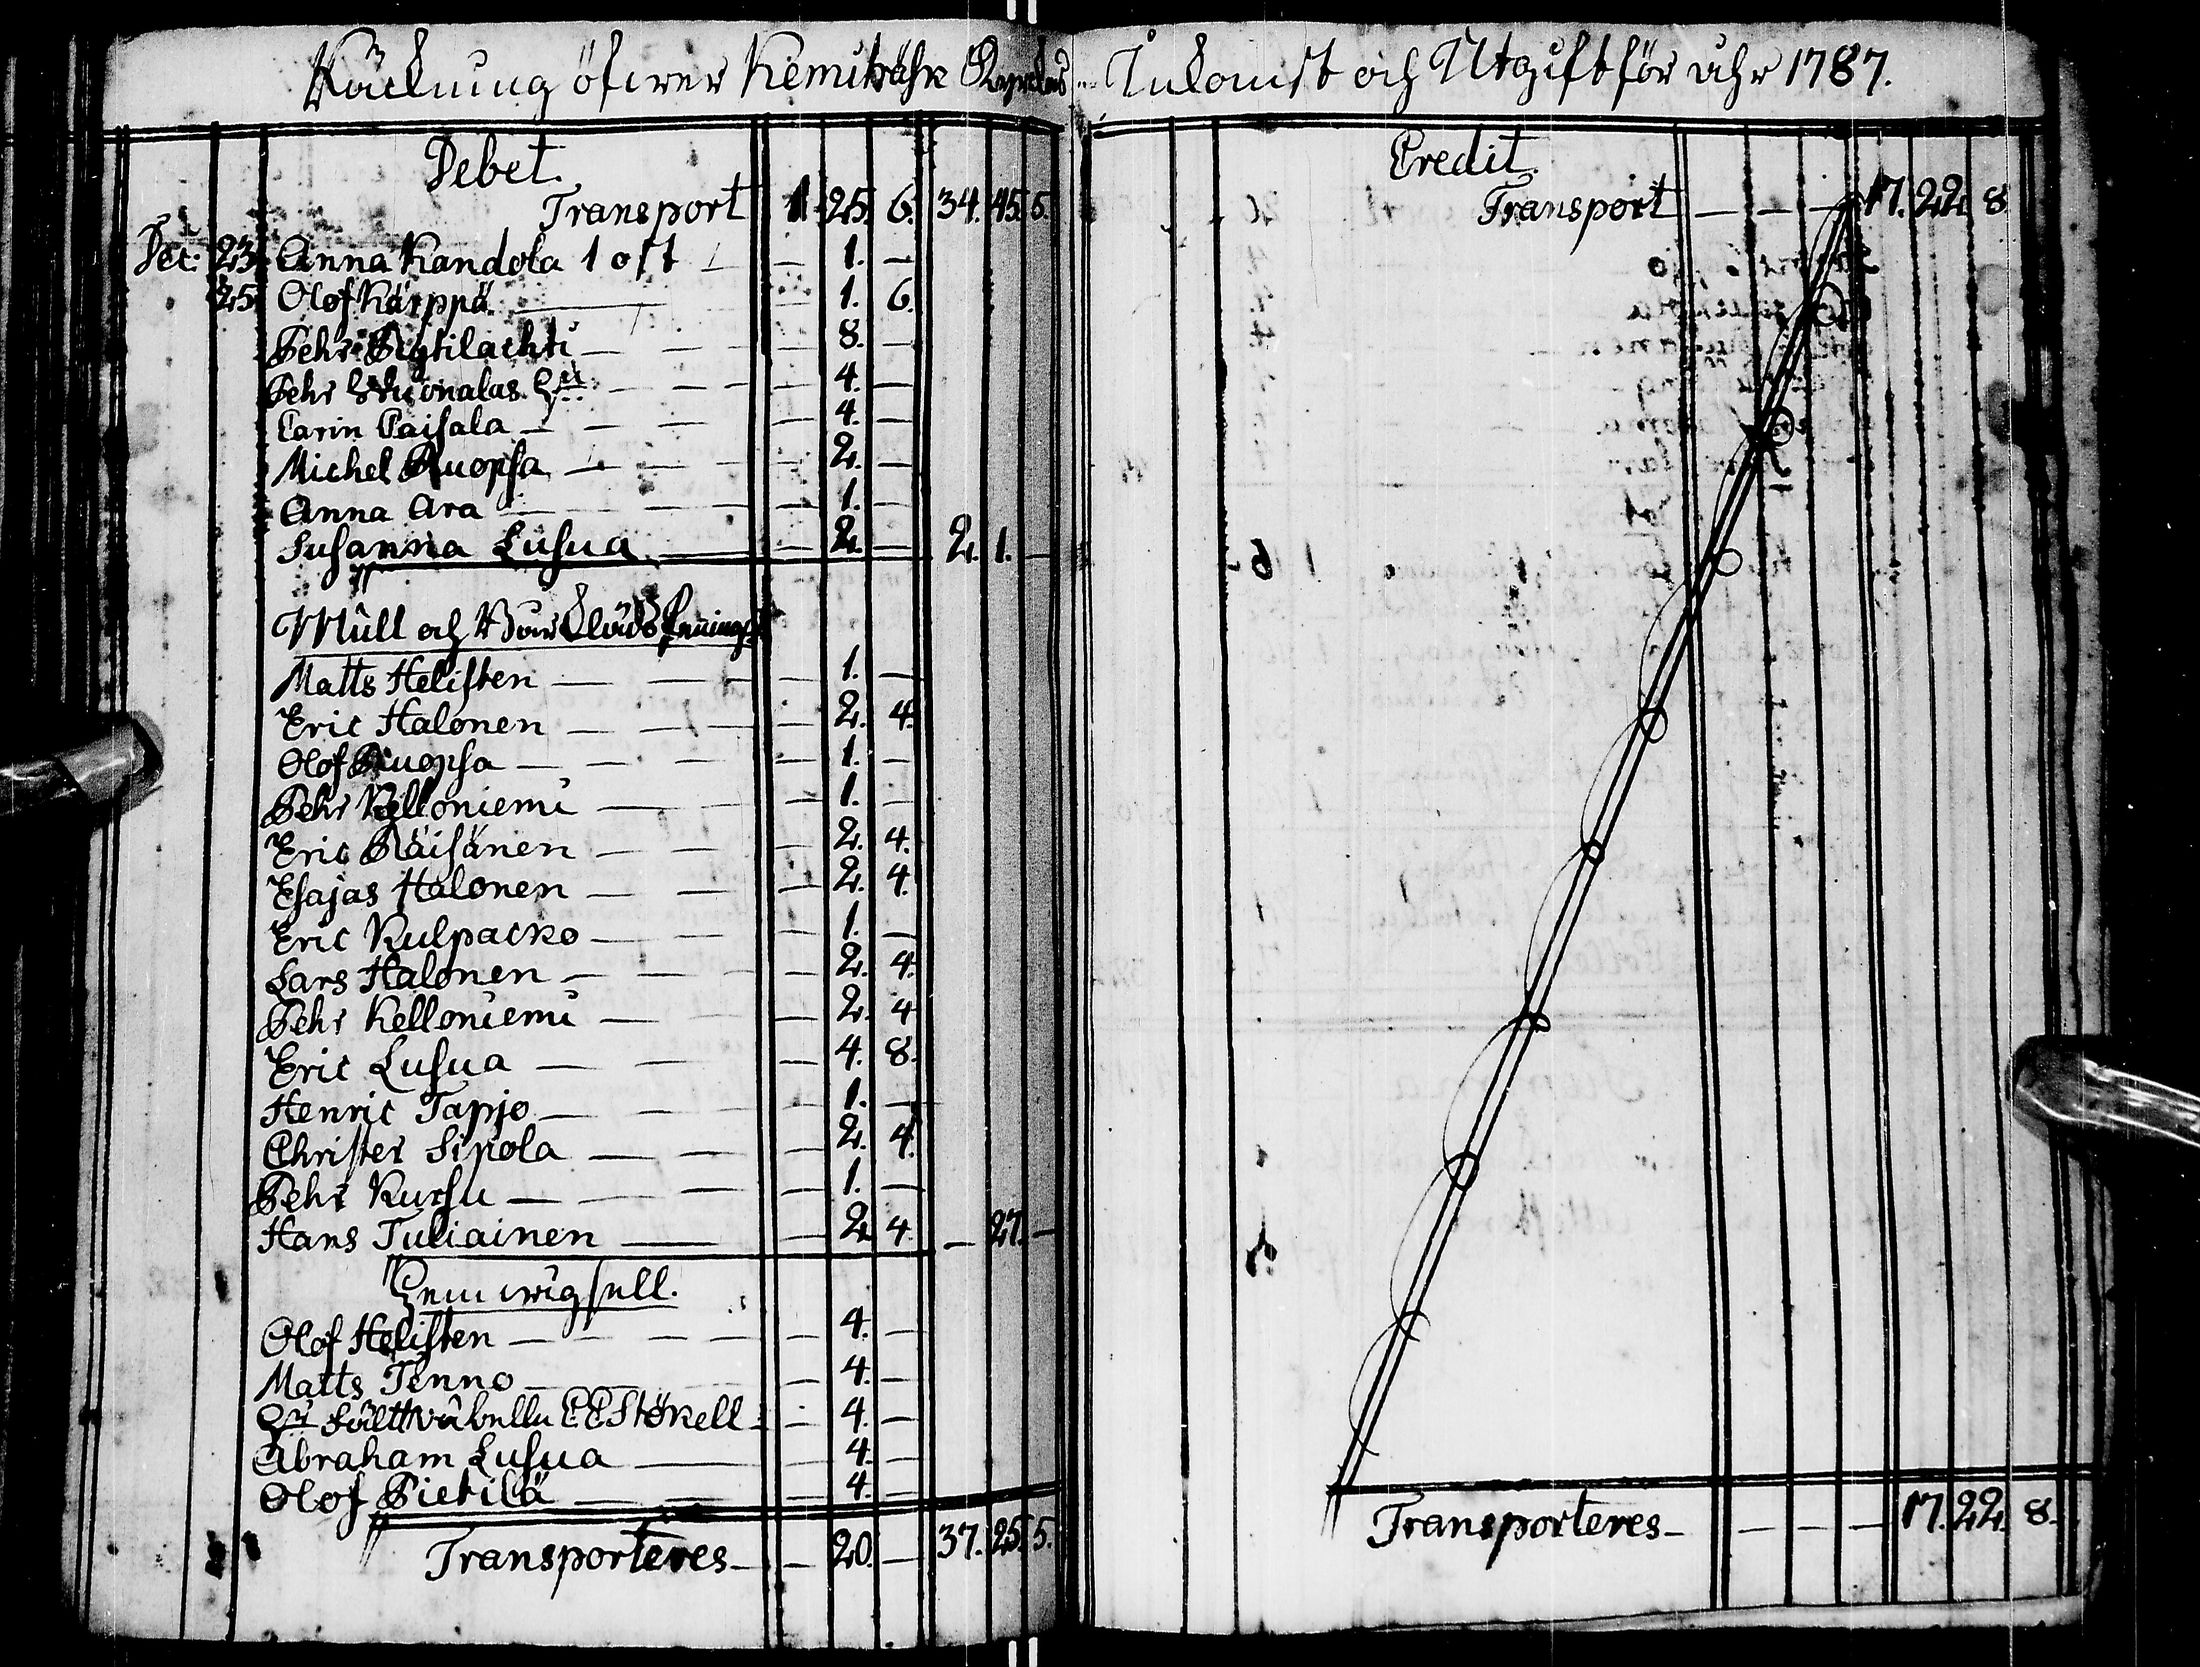 Räckning öfwer Kemiträsk Kyrckas Inkomst och Utgift för åhr 1787.
Debet.
Transport 1 25. 6. 34. 45. 5.
Dec. 23 Anna Kandola 1 oft — — 1. —
25 Olof Kärppä — — 1. 6.
Pehr Pyhilachti — — 8. —
Pehr — — 4. —
Carin Paisala — — 4. —
Michel Ruopsa — — 2. —
Anna Ara — — 1. —
Susanna Lusua — — 2. — 2. 1. —
Mull och Bårklädspenningar
Matts Helisten — — 1. —
Eric Halonen — — 2. 4.
Olof Ruopsa — — 1. —
Pehr Kelloniemi — — 1. —
Eric Räisänen — — 2. 4.
Esajas Halonen — — 2. 4.
Eric Kulpacko — — 1. —
Lars Halonen — — 2. 4.
Pehr Kelloniemi — — 2. 4
Eric Lusua — — 4. 8.
Henric Tapjo — — 1. —
Christer Sipola — — 2. 4.
Pehr Kursu — — 1. —
Hans Tuliainen — — 2. 4. — 27. —
Hemwigsell.
Olof Helisten — — 4. —
Matts Tenno — — 4. —
Hr Fältwäbelln Stökell — — 4. —
Abraham Lusua — — 4. —
Olof Pietilä — — 4. —
Transporteres — — 20. — 37. 25. 5.
Credit.
Transport — — — 17. 22. 8
Transporteres — — — — 17. 22. 8.